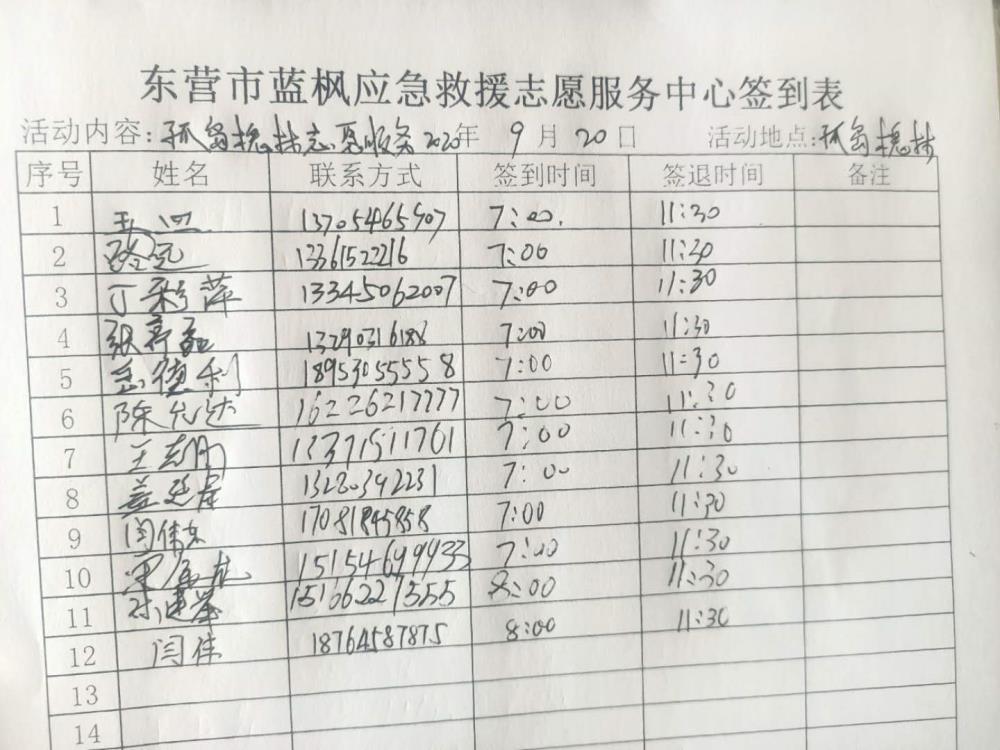 东营市蓝枫应急救援志愿服务中心签到表
活动内容:孤岛槐林志愿服务 2020年 9月 20日 活动地点:孤岛槐林
序号 姓名 联系方式 签到时间 签退时间 备注
1 13705465907 7:00. 11:30
2 路远 13361522216 7:00 11:30
3 丁彩萍 13345062007 7:00 11:30
4 张 13290316188 7:00 11:30
5 岳德利 18953055558 7:00 11:30
6 陈允达 16226217777 7:00 11:30
7 王志刚 13371511761 7:00 11:30
8 盖延 13280392231 7:00 11:30
9 闫伟东 17081845858 7:00 11:30
10 15154699933 7:00 11:30
11 孙建 15166221555 8:00 11:30
12 闫伟 18764587875 8:00 11:30
13
14